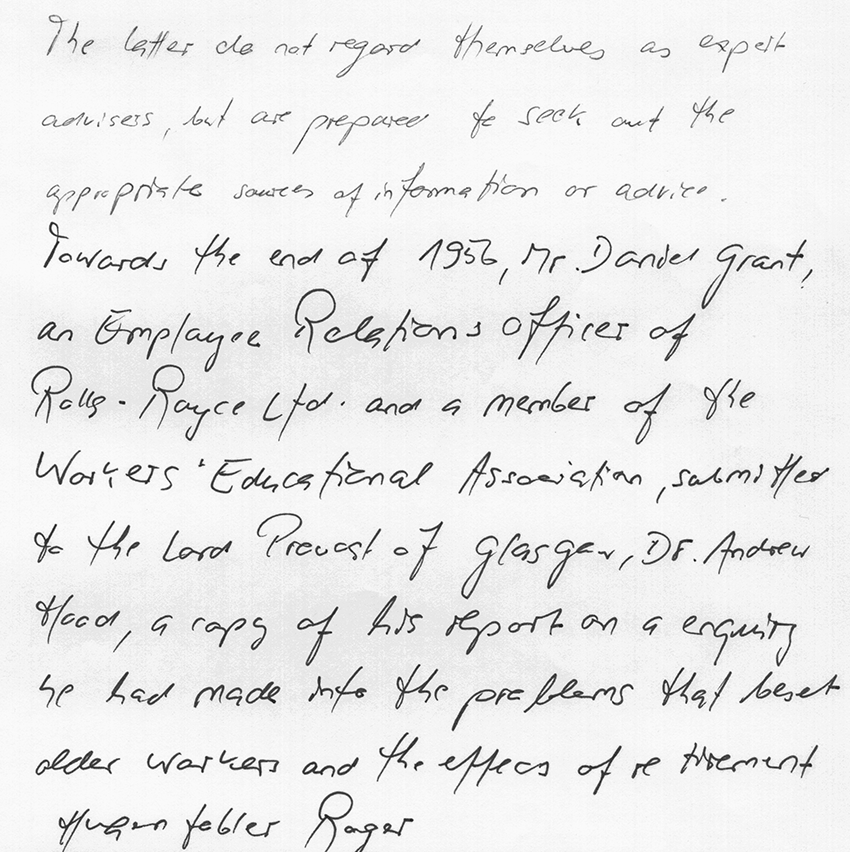 The latter do not regard themselves as expert
advisers, but are prepared to seek out the
appropriate sources of information or advice.
Towards the end of 1956, Mr. Daniel Grant,
an Employee Relations Officer of
Rolls-Royce Ltd. and a member of the
Workers' Educational Association, submitted
to the Lord Provost of Glasgow, Dr. Andrew
Hood, a copy of his report on a enquiry
he had made into the problems that beset
older workers and the effecs of retirement
Roger